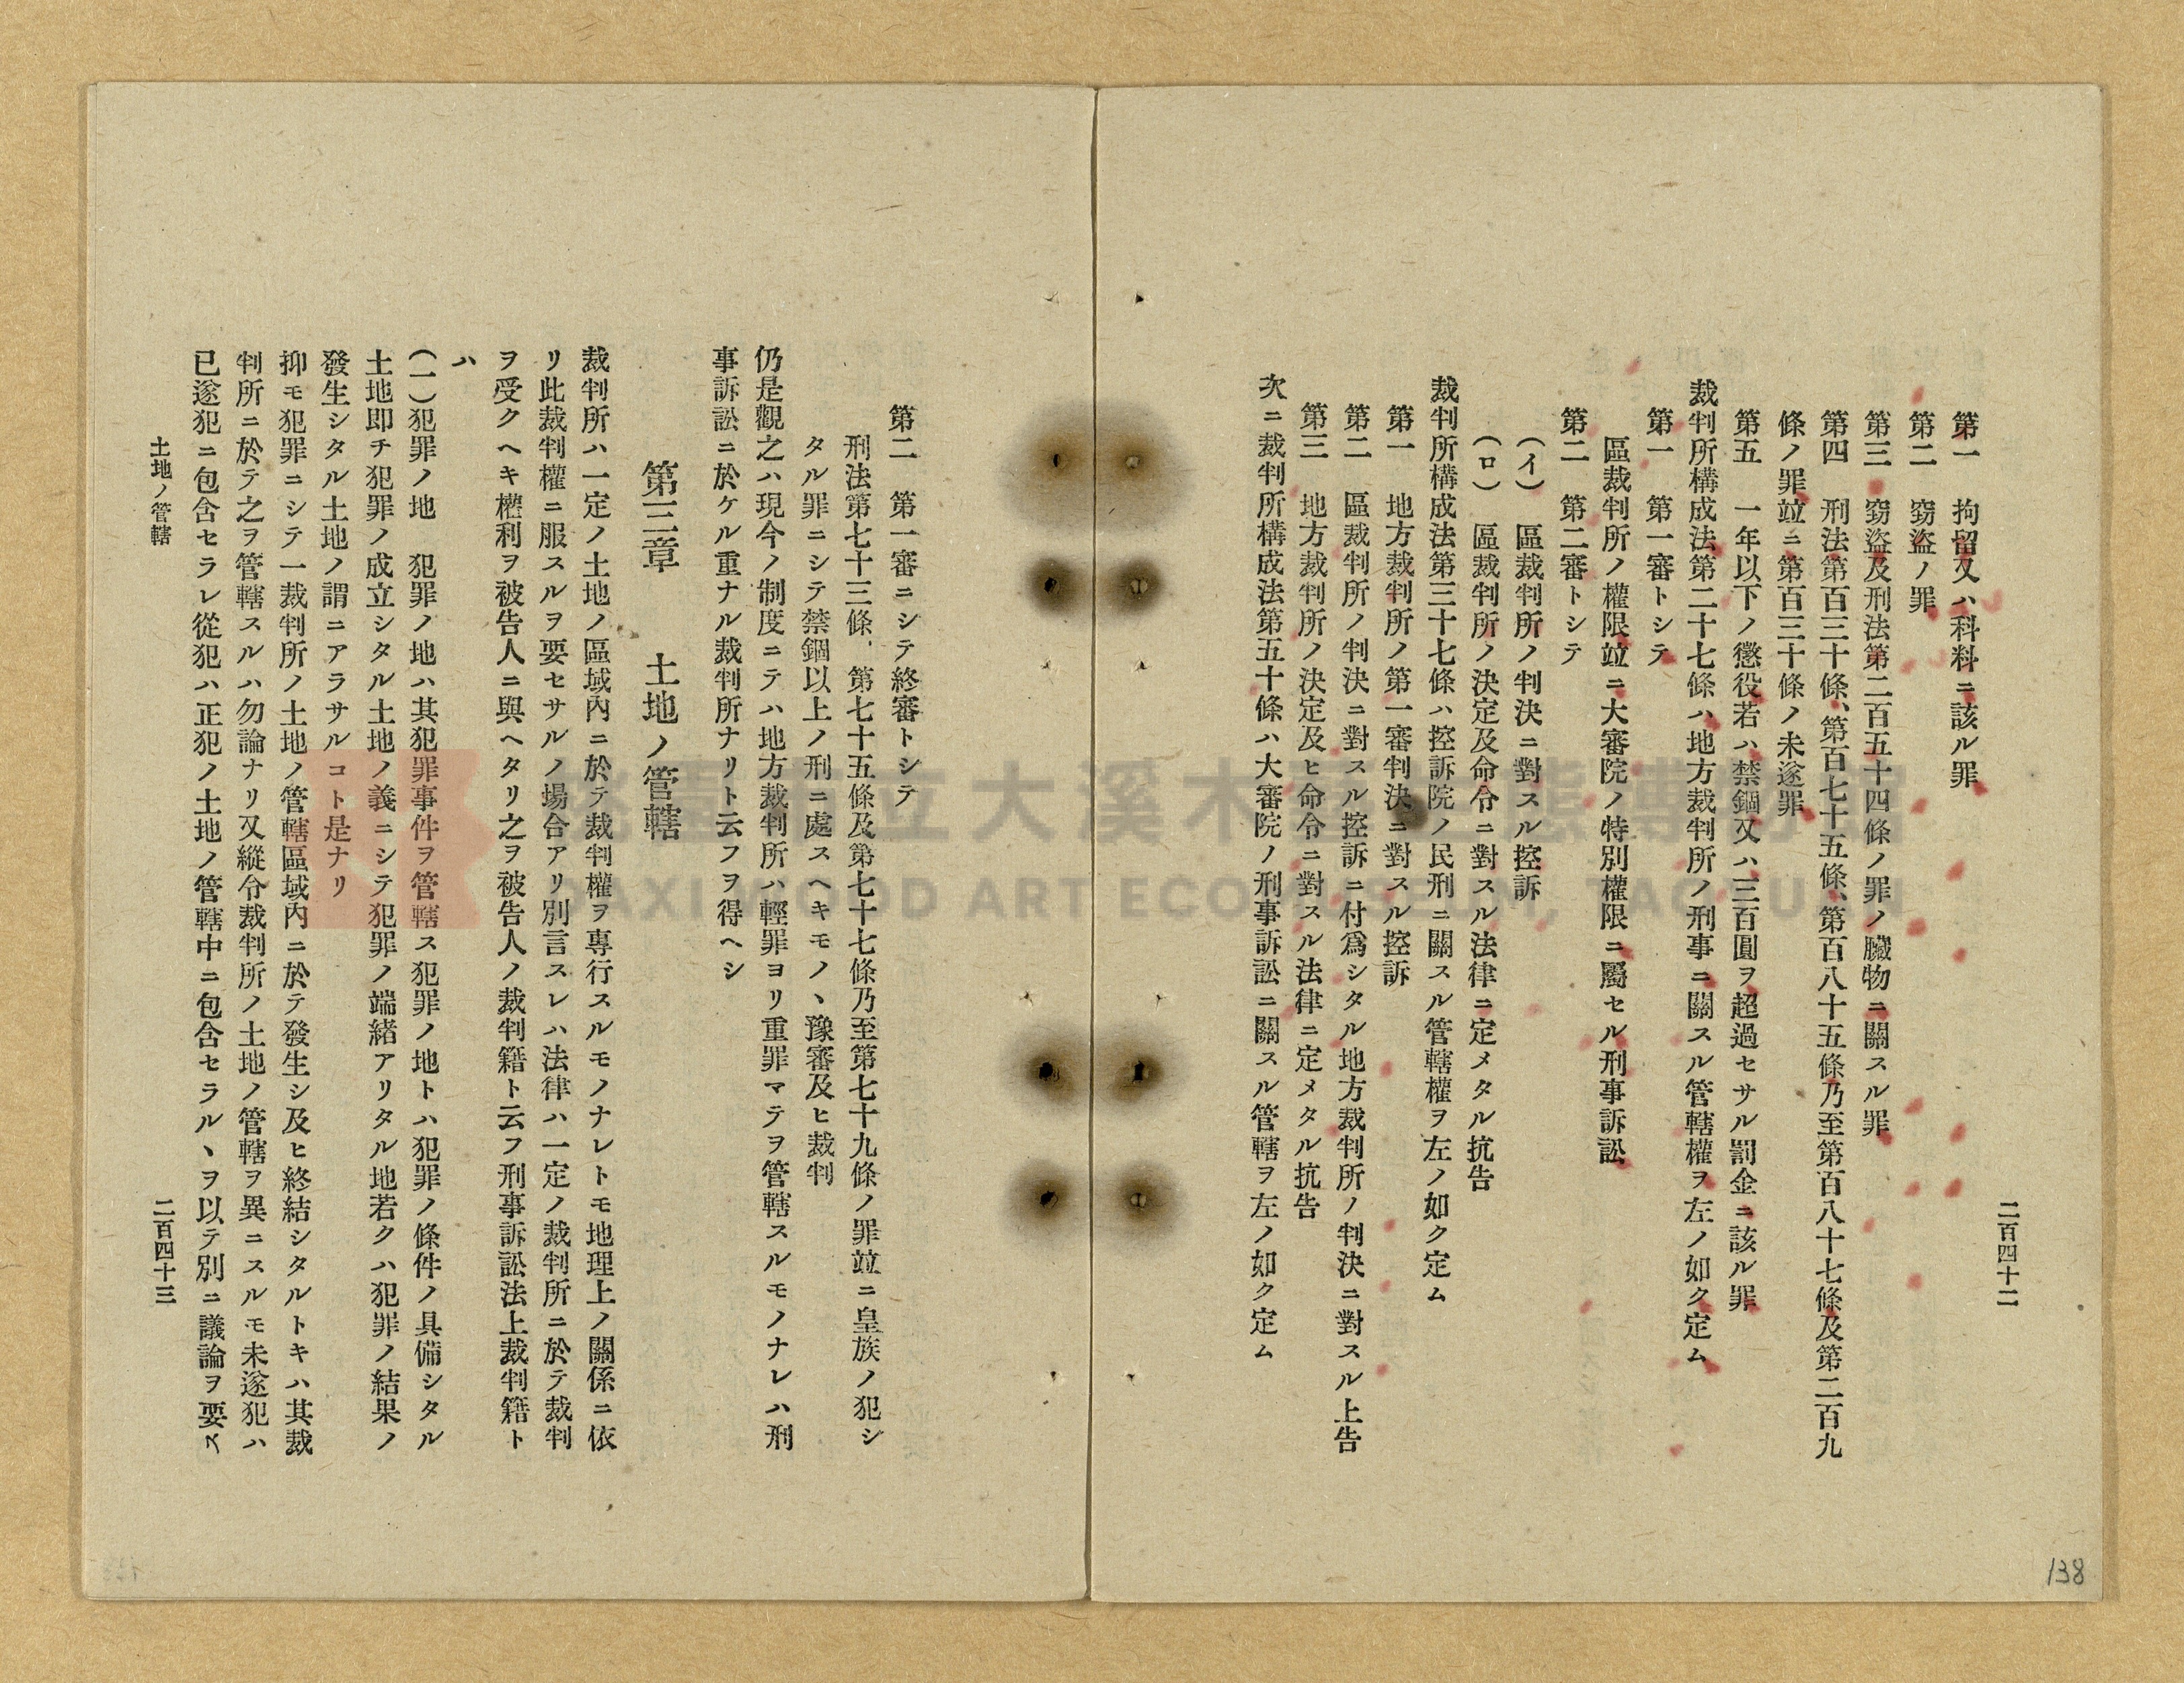 二百四十二
第一　拘留又ハ科料ニ該ル罪
第二　窃盜ノ罪
第三　窃盜及刑法第二百五十四條ノ罪ノ贓物ニ關スル罪
第四　刑法第百三十條、第百七十五條、第百八十五條乃至第百八十七條及第二百九
條ノ罪竝ニ第百三十條ノ未遂罪
第五　一年以下ノ懲役若ハ禁錮又ハ三百圓ヲ超過セサル罰金ニ該ル罪
裁判所構成法第二十七條ハ地方裁判所ノ刑事ニ關スル管轄權ヲ左ノ如ク定ム
第一　第一審トシテ
區裁判所ノ權限竝ニ大審院ノ特別權限ニ屬セル刑事訴訟
第二　第二審トシテ
（イ）　區裁判所ノ判決ニ對スル控訴
（ロ）　區裁判所ノ決定及命令ニ對スル法律ニ定メタル抗告
裁判所構成法第三十七條ハ控訴院ノ民刑ニ關スル管轄權ヲ左ノ如ク定ム
第一　地方裁判所ノ第一審判決ニ對スル控訴
第二　區裁判所ノ判決ニ對スル控訴ニ付爲シタル地方裁判所ノ判決ニ對スル上告
第三　地方裁判所ノ決定及ヒ命令ニ對スル法律ニ定メタル抗告
次ニ裁判所構成法第五十條ハ大審院ノ刑事訴訟ニ關スル管轄ヲ左ノ如ク定ム
138
第二　第一審ニシテ終審トシテ
刑法第七十三條、第七十五條及第七十七條乃至第七十九條ノ罪竝ニ皇族ノ犯シ
タル罪ニシテ禁錮以上ノ刑ニ處スヘキモノヽ豫審及ヒ裁判
仍是觀之ハ現今ノ制度ニテハ地方裁判所ハ輕罪ヨリ重罪マテヲ管轄スルモノナレハ刑
事訴訟ニ於ケル重ナル裁判所ナリト云フヲ得ヘシ
第三章　土地ノ管轄
裁判所ハ一定ノ土地ノ區域內ニ於テ裁判權ヲ專行スルモノナレトモ地理上ノ關係ニ依
リ此裁判權ニ服スルヲ要セサルノ場合アリ別言スレハ法律ハ一定ノ裁判所ニ於テ裁判
ヲ受クヘキ權利ヲ被告人ニ與ヘタリ之ヲ被告人ノ裁判籍ト云フ刑事訴訟法上裁判籍ト
ハ
（一）犯罪ノ地　犯罪ノ地ハ其犯罪事件ヲ管轄ス犯罪ノ地トハ犯罪ノ條件ノ具備シタル
土地即チ犯罪ノ成立シタル土地ノ義ニシテ犯罪ノ端緖アリタル地若クハ犯罪ノ結果ノ
發生シタル土地ノ謂ニアラサルコト是ナリ
抑モ犯罪ニシテ一裁判所ノ土地ノ管轄區域內ニ於テ發生シ及ヒ終結シタルトキハ其裁
判所ニ於テ之ヲ管轄スルハ勿論ナリ又縱令裁判所ノ土地ノ管轄ヲ異ニスルモ未遂犯ハ
已遂犯ニ包含セラレ從犯ハ正犯ノ土地ノ管轄中ニ包含セラルヽヲ以テ別ニ議論ヲ要ス
土地ノ管轄
二百四十三
大溪木
DAXI WOOD ART ECOMUSEUM, TAOYUAN